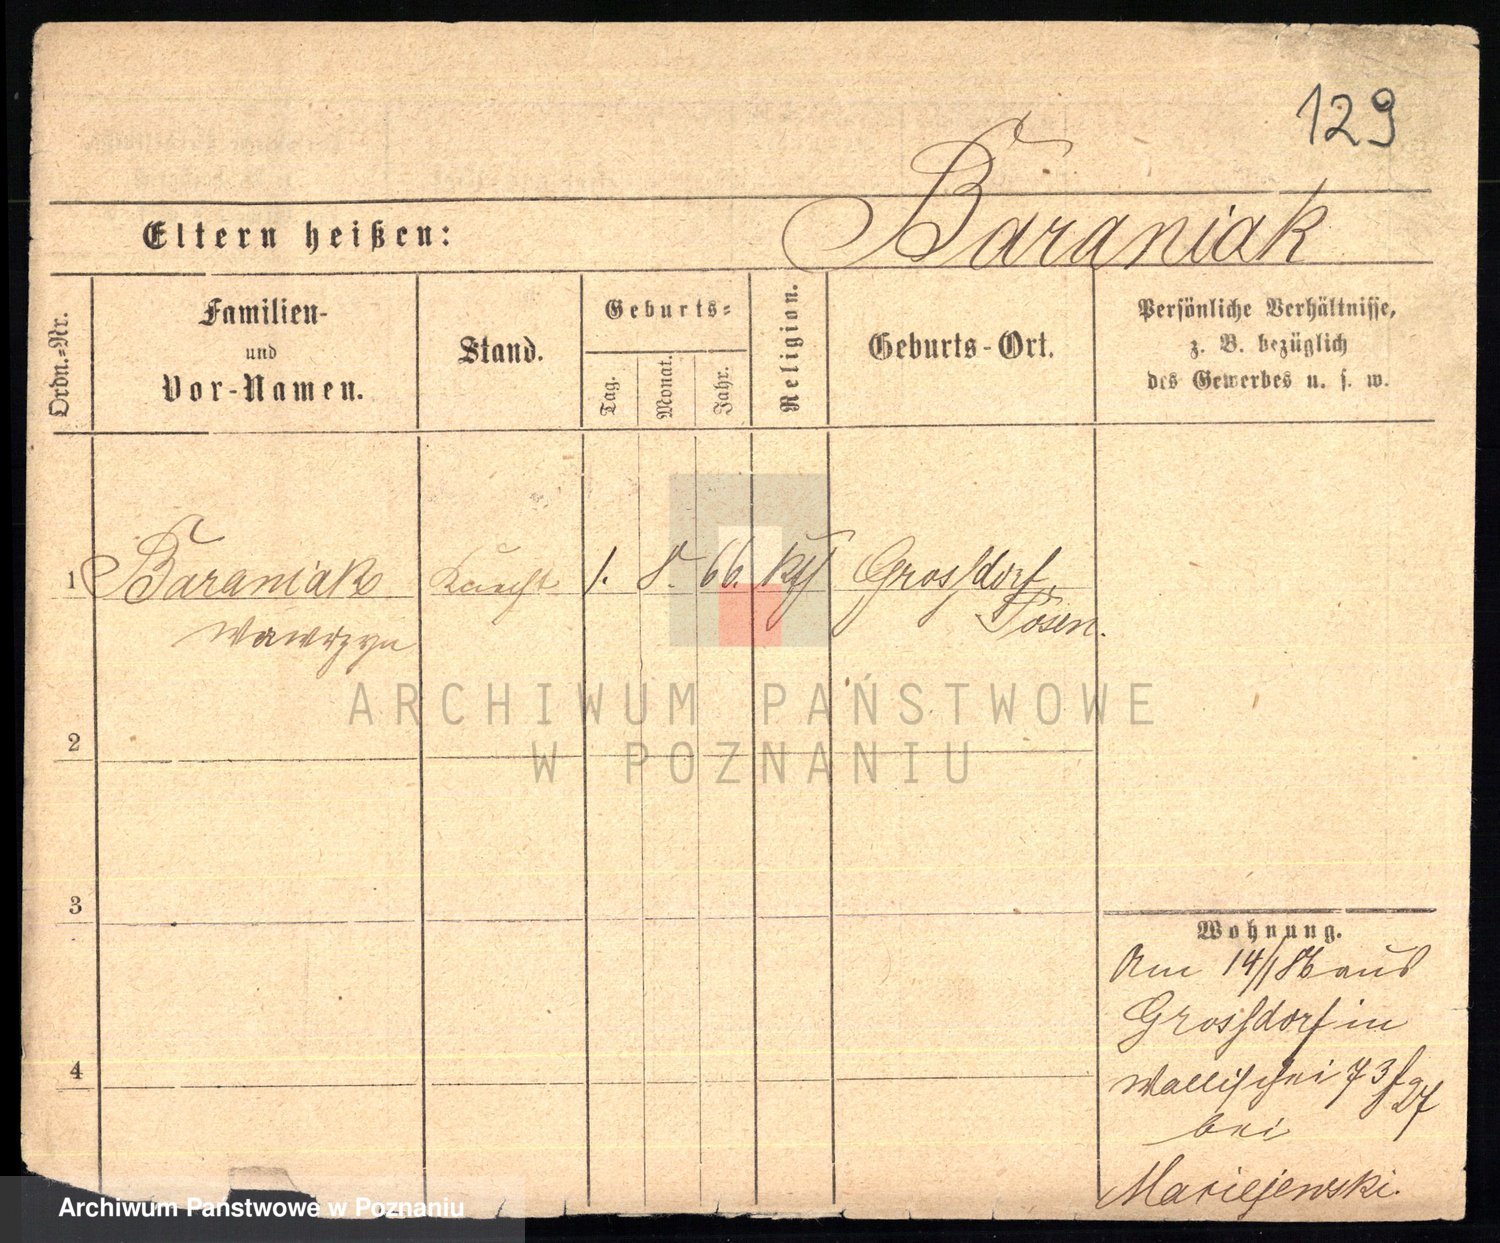 129
Eltern heißen: Baraniak
Ordn.-Nr.
Familien-
und
Vor-Namen.
Stand.
Geburts-
Tag.
Monat.
Jahr.
Religion.
Geburts-Ort.
Persönliche Verhältnisse,
z. B. bezüglich
des Gewerbes u. s. w.
1 Baraniak Knecht 1. 8. 66. kth Grossdorf
Wawrzyn Posen.
ARCHIWUM PAŃSTWOWE
W POZNANIU
2
3
4
Wohnung.
Am 14/1 86 aus
Grossdorf in
Wallischei 73
bei
Maciejewski.
Archiwum Państwowe w Poznaniu